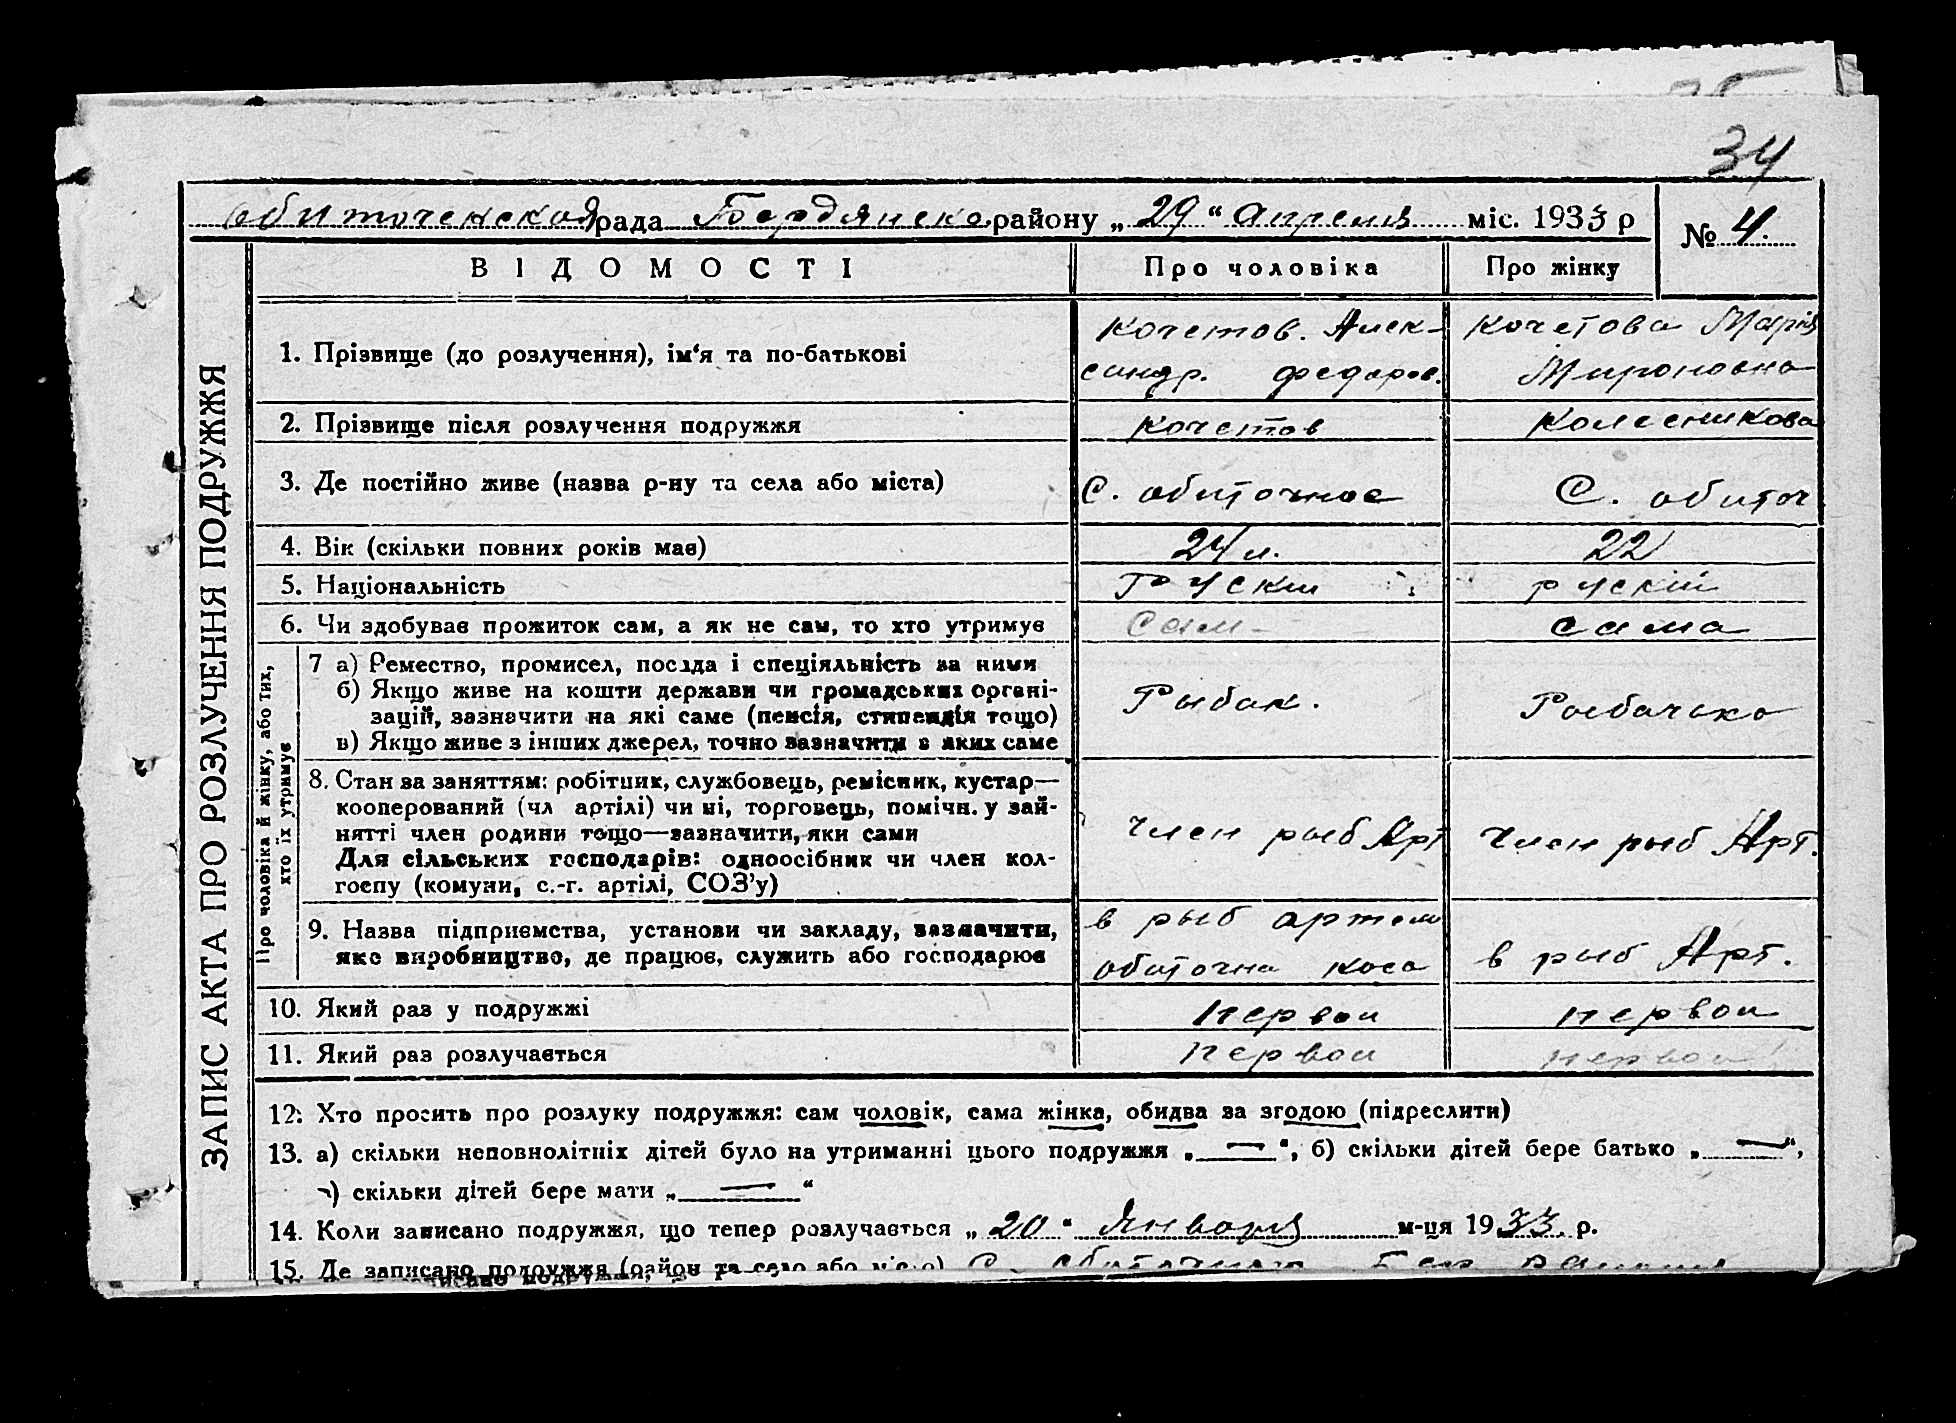 34
Обиточенская рада Бердянско району „29“ Апреля міс. 1933 р
№ 4.
ВІДОМОСТІ Про чоловіка Про жінку
ЗАПИС АКТА ПРО РОЗЛУЧЕННЯ ПОДРУЖЖЯ
1. Прізвище (до розлучення), ім‘я та по-батькові
Кочетов. Алек-
сандр. федоров.
Кочетова Марія
Мироновна
2. Прізвище після розлучення подружжя Кочетов Колесникова
3. Де постійно живе (назва р-ну та села або міста) С. обиточное С. обиточ
4. Вік (скільки повних років має) 24 л. 22
5. Національність Руский руский
6. Чи здобуває прожиток сам, а як не сам, то хто утримує Сам- сама
Про чоловіка й жінку, або тих,
хто їх утримує
7 а) Ремество, промисел, посада і спеціяльність за ними
б) Якщо живе на кошти держави чи громадських органі-
зацій, зазначити на які саме (пенсія, стипендія тощо)
в) Якщо живе з інших джерел, точно зазначити з яких саме
Рыбак.
Рыбачько
8. Стан за заняттям: робітник, службовець, ремісник, кустар—
кооперований (чл артілі) чи ні, торговець, помічн. у зай-
нятті член родини тощо—зазначити, яки сами
Для сільських господарів: одноосібник чи член кол-
госпу (комуни, с.-г. артілі, СОЗ’у)
Член рыб Арт
Член рыб Арт.
9. Назва підприємства, установи чи закладу, зазначити,
яке виробництво, де працює, служить або господарює
в рыб артели
обиточна коса
в рыб Арт.
10. Який раз у подружжі первой первой
11. Який раз розлучається первой первой
12. Хто просить про розлуку подружжя: сам чоловік, сама жінка, обидва за згодою (підреслити)
13. а) скільки неповнолітніх дітей було на утриманні цього подружжя „—“, б) скільки дітей бере батько „—“,
в) скільки дітей бере мати „—“
14. Коли записано подружжя, що тепер розлучається „20“ Января м-ця 1933 р.
15. Де записано подружжя (район та село або місто) С. Обиточное